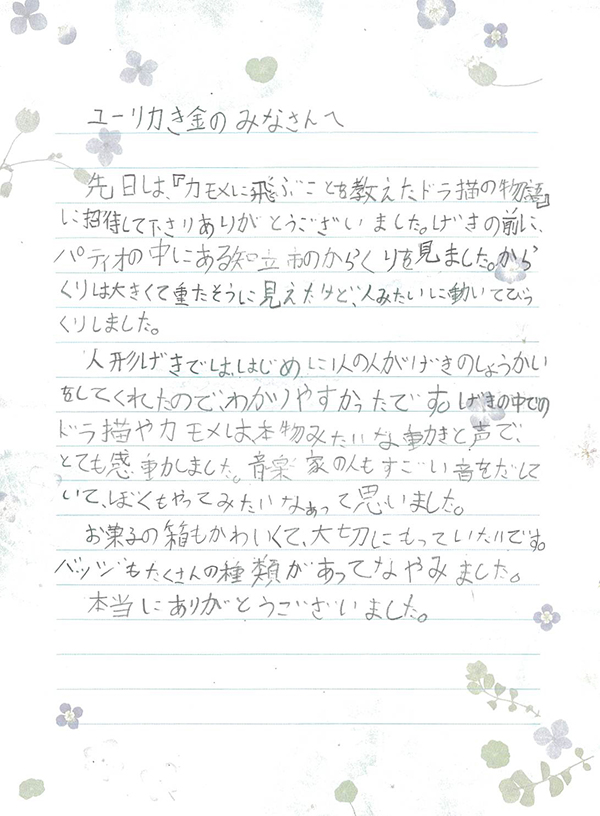 ユーリカき金のみなさんへ
先日は、『カモメに飛ぶことを教えたドラ描の物語』
に招待して下さりありがとうございました。げきの前に、
パティオの中にある知立市のからくりを見ました。から
くりは大きくて重たそうに見えたけど、人みたいに動いてびっ
くりしました。
人形げきでは、はじめに1人の人がげきのしょうかい
をしてくれたので、わかりやすかったです。げきの中での
ドラ描やカモメは、本物みたいな動きと声で、
とても感動しました。音楽家の人もすごい音をだして
いて、ぼくもやってみたいなぁって思いました。
お菓子の箱もかわいくて、大切にもっていたいです。
バッジもたくさんの種類があってなやみました。
本当にありがとうございました。